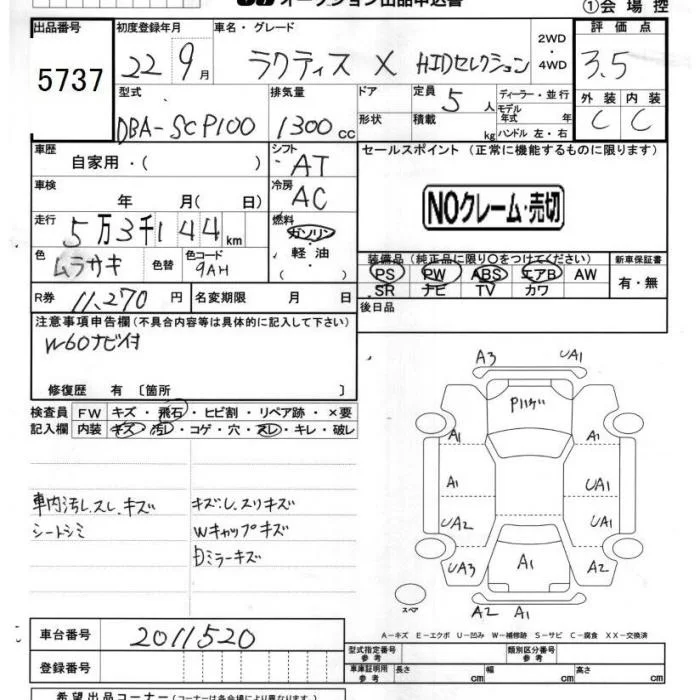 オークション出品申込書 ①会場控
出品番号 初度登録年月 車名・グレード 2WD・4WD 評価点
5737 22 9月 ラクティス X HIDセレクション 3.5
型式 排気量 ドア 定員 5人 ディーラー・並行 外装 内装
DBA-SCP100 1300cc 形状 積載 kg モデル年式 年 ハンドル 左・右 C C
車歴 自家用・( ) シフト AT セールスポイント (正常に機能するものに限ります)
車検 年 月( 日) 冷房 AC
NOクレーム・売切
走行 5万3千144km 燃料 ガソリン・軽油・( )
色 ムラサキ 色替 色コード 9AH
装備品(純正品に限り○をつけてください) 新車保証書
PS PW ABS エアB AW 有・無
SR ナビ TV カワ
R券 11,270円 名変期限 月 日 後日品
注意事項申告欄(不具合内容等は具体的に記入して下さい)
W60ナビ付
修復歴 有〔箇所 〕
検査員 FW キズ・飛石・ヒビ割・リペア跡・×要
記入欄 内装 キズ・汚レ・コゲ・穴・スレ・キレ・破レ
車内汚し.スレ.キズ キズし.スリキズ
シートシミ Wキャップキズ
ミラーキズ
A3 UA1
Pハゲ
A1 A1
A1 UA1
UA2 UA1
UA3 A1 A2
スペア A2 A1
A-キズ E-エクボ U-凹み W-補修跡 S-サビ C-腐食 XX-交換済
車台番号 2011520 型式指定番号 参考 類別区分番号 参考
登録番号 車庫証明用 参考 長さ cm 幅 cm 高さ cm
希望出品コーナー(コーナー名は各会場により異なります)